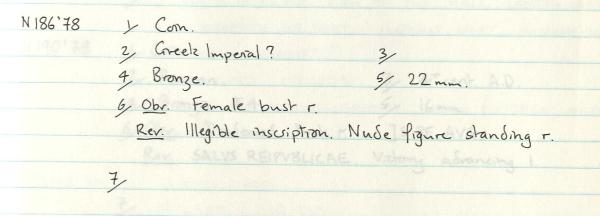 N186'78 1/ Coin.
2/ Greek Imperial ? 3/
4/ Bronze. 5/ 22mm.
6/ Obv. Female bust r.
Rev. Illegible inscription. Nude figure standing r.
7/